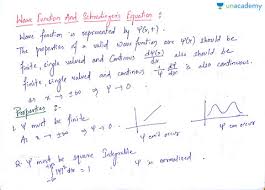 unacademy
Wave Function And Schrodinger's Equation :
Wave function is represented by Ψ(x,t).
The properties of a valid wave function are Ψ(x) should be
finite, single valued and continuous dΨ(x)/dx also should be
finite, single valued and continuous is also continuous.
as x → ±∞ Ψ → 0
Properties :
1. Ψ must be finite
As x → ±∞ Ψ → 0
Ψ can't occur
Ψ can occur
2. Ψ must be square Integrable
∫|Ψ|² dx = 1 Ψ is normalised.